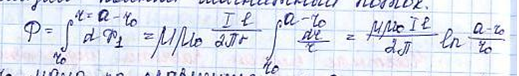 Φ = ∫_{r_0}^{r=a-r_0} dΦ_1 = μμ_0 \frac{Iℓ}{2πr} ∫_{r_0}^{a-r_0} \frac{dr}{r} = \frac{μμ_0 Iℓ}{2π} ln \frac{a-r_0}{r_0}